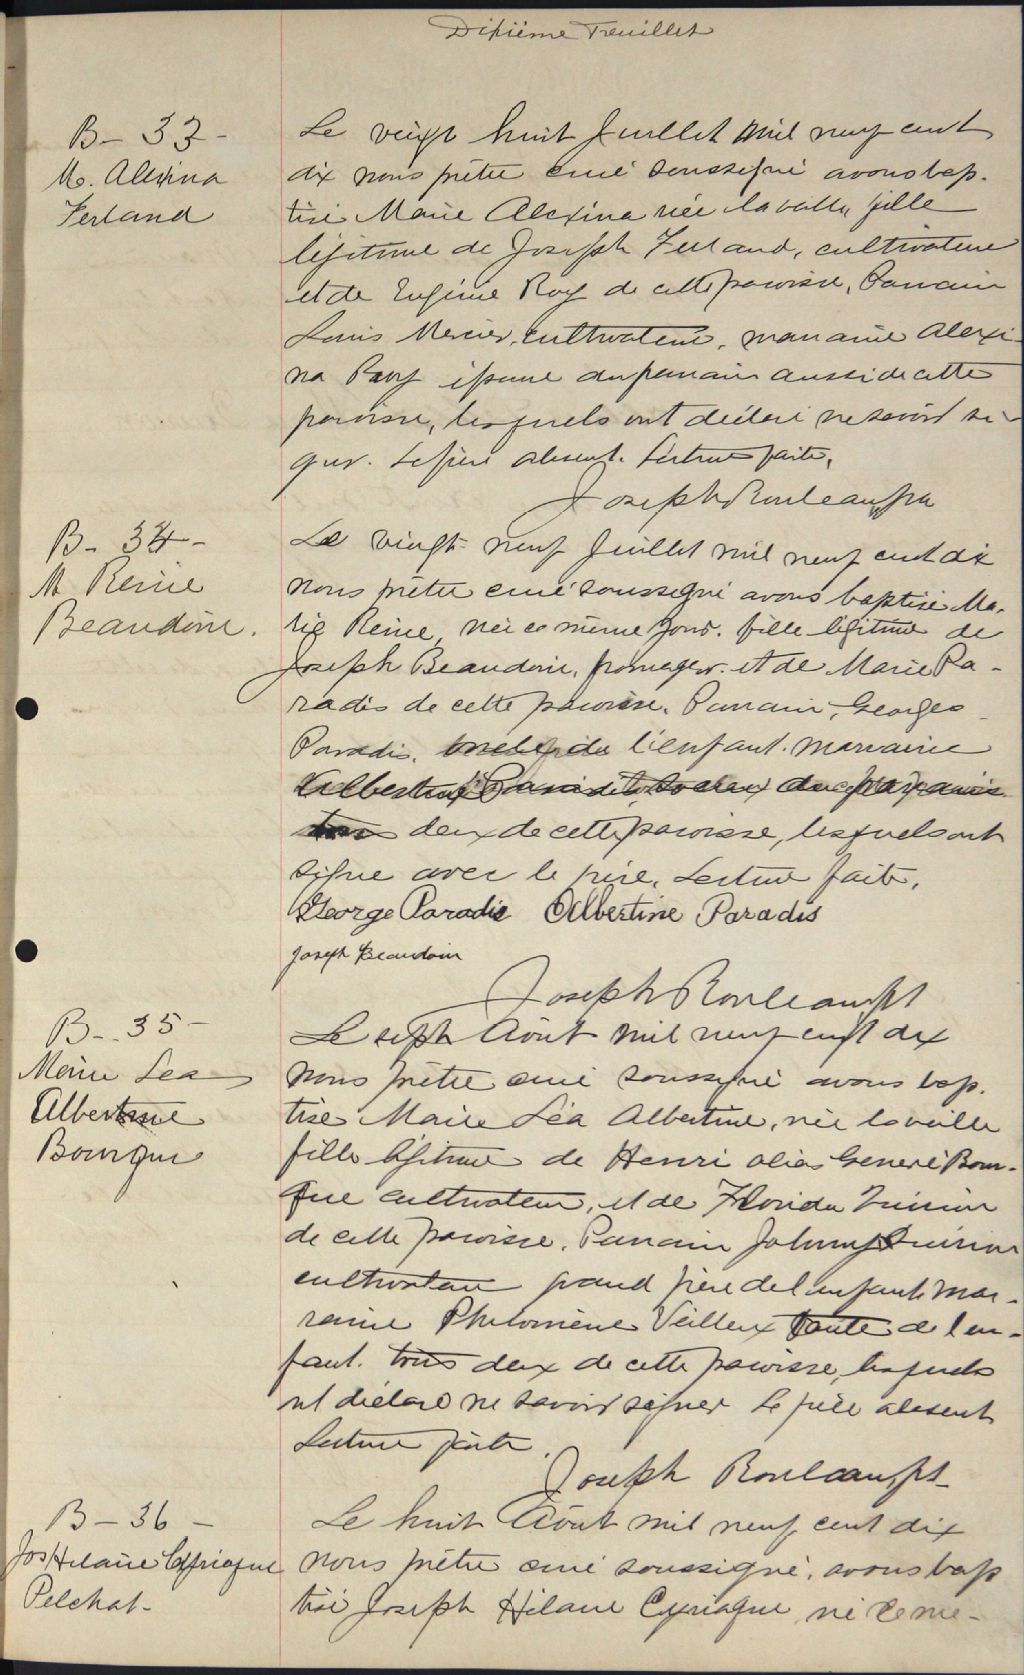 Dixième Feuillet
B- 33-
M. Alexina
Ferland
Le vingt huit Juillet mil neuf cent
dix nous prêtre curé soussigné avons bap-
tisé Marie Alexina née la veille fille
légitime de Joseph Ferland, cultivateur
et de Eugénie Roy de cette paroisse, Parrain
Louis Mercier, cultivateur, marraine Alexi-
na Roy épouse du parrain aussi de cette
paroisse, lesquels ont déclaré ne savoir si-
gner. Le père absent. Lecture faite,
Joseph Rouleau ptr
B- 34-
M Reine
Beaudoin.
Le vingt-neuf Juillet mil neuf cent dix
nous prêtre curé soussigné avons baptisé Ma-
rie Reine, née ce même jour. fille légitime de
Joseph Beaudoin, fromager et de Marie Pa-
radis de cette paroisse. Parrain, Georges
Paradis, oncle de l'enfant. marraine
Albertine Paradis
deux de cette paroisse, lesquels ont
signé avec le père, Lecture faite,
George Paradis Albertine Paradis
Joseph Beaudoin
Joseph Rouleau ptr
B-. 35-
Marie Lea
Albertine
Bourque
Le sept Août mil neuf cent dix
nous prêtre curé soussigné avons bap-
tisé Marie Léa Albertine, née la veille
fille légitime de Henri alias Generé Bour-
que cultivateur, et de Florida
de cette paroisse. Parrain Johnny
cultivateur grand père de l'enfant, mar-
raine Philomène Veilleux tante de l'en-
fant. tous deux de cette paroisse, lesquels
ont déclaré ne savoir signer Le père absent
Lecture faite.
Joseph Rouleau, ptr
B - 36 -
Jos Hilaire Cyriaque
Pelchat-
Le huit Août mil neuf cent dix
nous prêtre curé soussigné, avons bap
tisé Joseph Hilaire Cyriaque né ce mê-